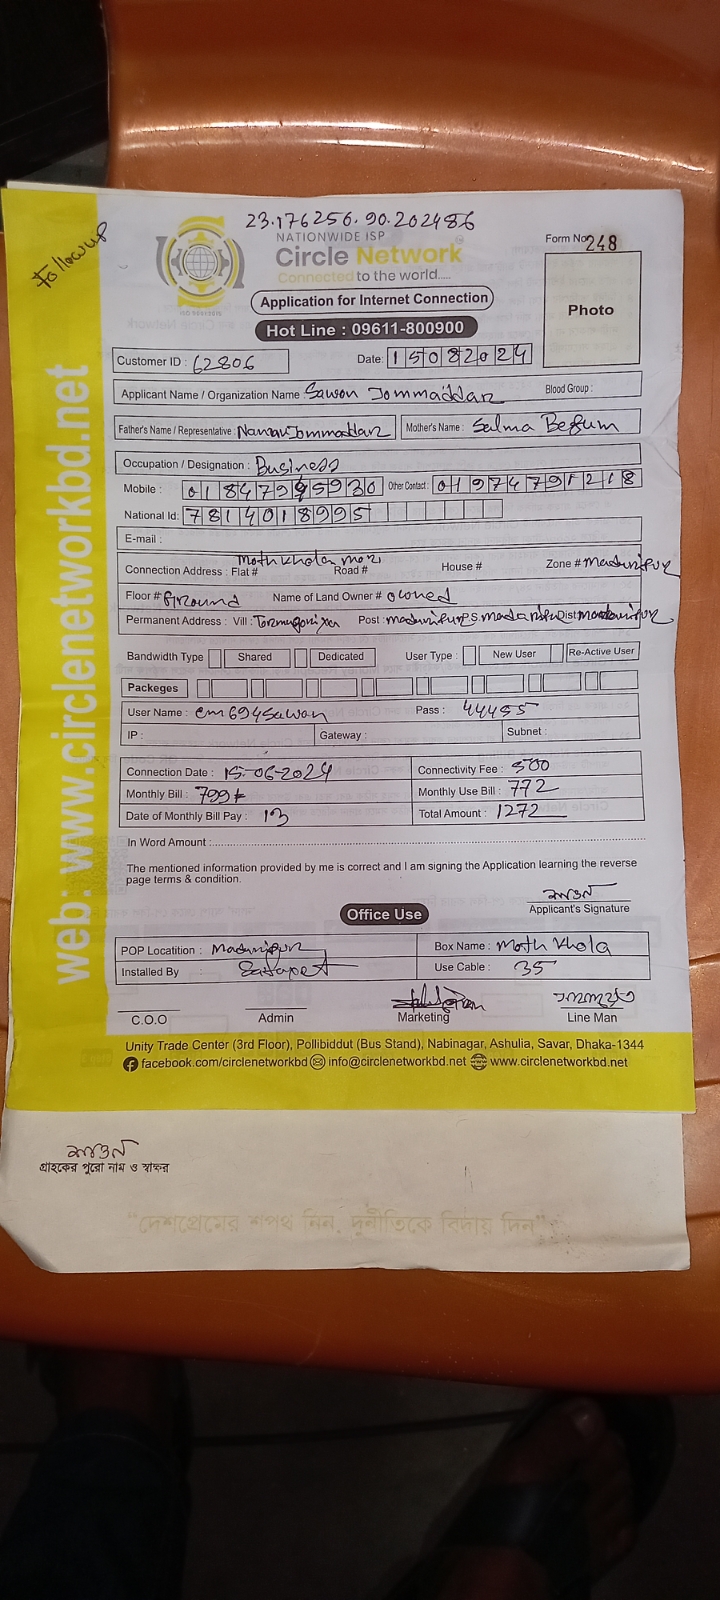 23.176256.90.202486
Follow up
NATIONWIDE ISP
Circle Network
Connected to the world.....
ISO 9001:2015
Form No 248
Photo
Application for Internet Connection
Hot Line : 09611-800900
Customer ID : 62806 Date: 15082024
Applicant Name / Organization Name : Sawon Jommaddar Blood Group :
Father's Name / Representative : Nannu Jommaddar Mother's Name : Salma Begum
Occupation / Designation : Business
Mobile : Other Contact : 01974791218
National Id: 7814018995
E-mail :
Connection Address : Flat # Moth Khola Road # House # Zone # Madaripur
Floor # Ground Name of Land Owner # owned
Permanent Address : Vill : Post : Dist: Madaripur
Bandwidth Type Shared Dedicated User Type : New User Re-Active User
Packeges
User Name : cm694sawon Pass : 44455
IP : Gateway : Subnet :
Connection Date : 15-06-2024 Connectivity Fee : 500
Monthly Bill : 799 Monthly Use Bill : 772
Date of Monthly Bill Pay : 13 Total Amount : 1272
In Word Amount :
The mentioned information provided by me is correct and I am signing the Application learning the reverse
page terms & condition.
শাওন
Applicant's Signature
Office Use
POP Locatition : Madaripur Box Name : Moth Khola
Installed By : Use Cable : 35
C.O.O Admin Marketing Line Man
Unity Trade Center (3rd Floor), Pollibiddut (Bus Stand), Nabinagar, Ashulia, Savar, Dhaka-1344
facebook.com/circlenetworkbd info@circlenetworkbd.net www.circlenetworkbd.net
web: www.circlenetworkbd.net
শাওন
গ্রাহকের পুরো নাম ও স্বাক্ষর
"দেশপ্রেমের শপথ নিন, দুর্নীতিকে বিদায় দিন"